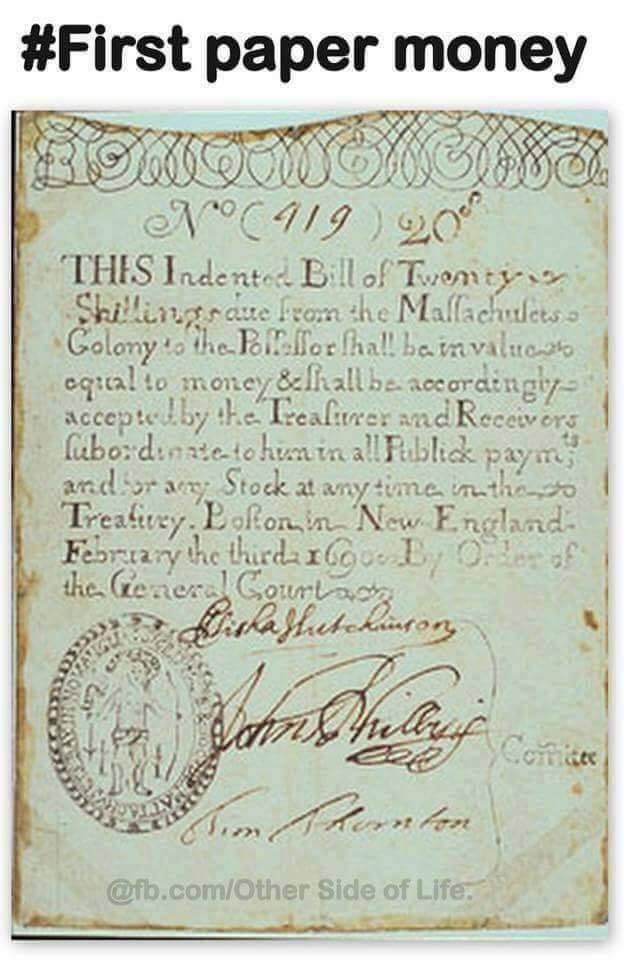 #First paper money
No (419) 20s
THIS Indented Bill of Twenty
Shillings due from the Massachusets
Colony to the Possessor shall be in value
equal to money & shall be accordingly
accepted by the Treasurer and Receivers
subordinate to him in all Publick paymts
and for any Stock at any time in the
Treasury. Boston in New England
February the third 1690. By Order of
the General Court
Elisha Hutchinson
John Phillips
Comitee
Tim Thornton
@fb.com/Other Side of Life.